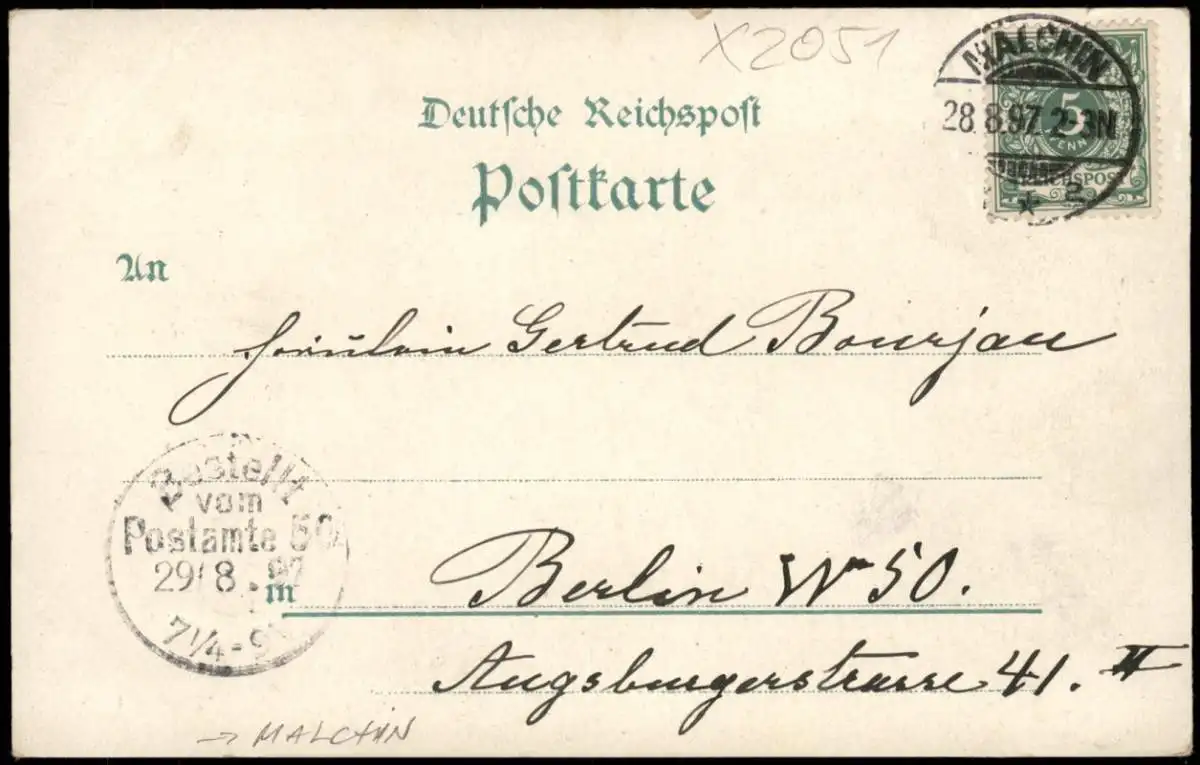 X2051
Deutsche Reichspost
Postkarte
MALCHIN
28.8.97 2-3N
* 2
5
REICHSPOST
An
Fräulein Gertrud Bourjau
Bestellt
vom
Postamte 50
29/8.97
7¼-9
in Berlin W 50.
Augsburgerstrasse 41. II
→ MALCHIN